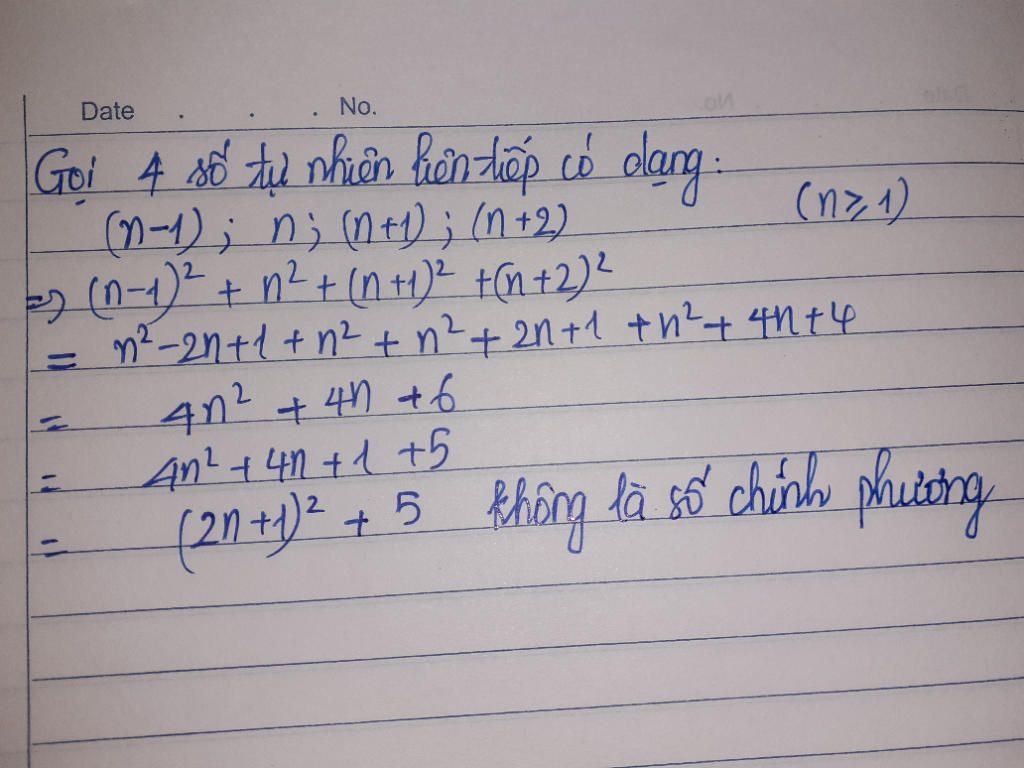 Date . . . No.
Gọi 4 số tự nhiên liên tiếp có dạng:
(n-1); n; (n+1); (n+2) (n⩾1)
=> (n-1)² + n² + (n+1)² +(n+2)²
= n²-2n+1 + n² + n² + 2n+1 +n²+ 4n+4
= 4n² + 4n +6
= 4n² + 4n +1 +5
= (2n+1)² + 5 không là số chính phương